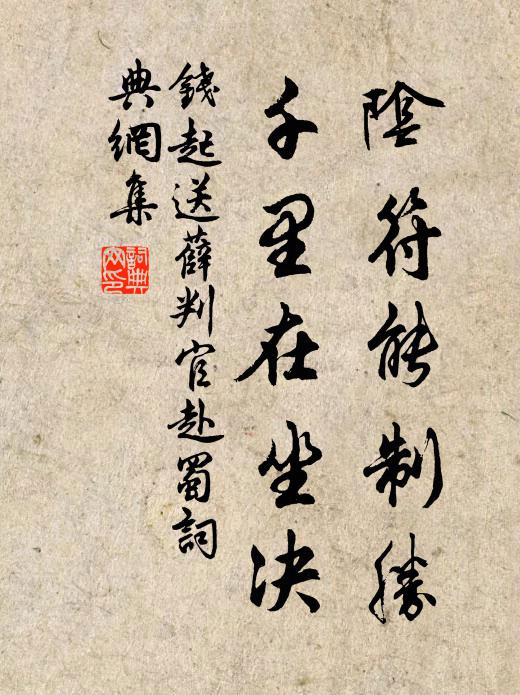 陰符能制勝
千里在坐决
錢起送薛判官赴蜀詞
典網集
詞典